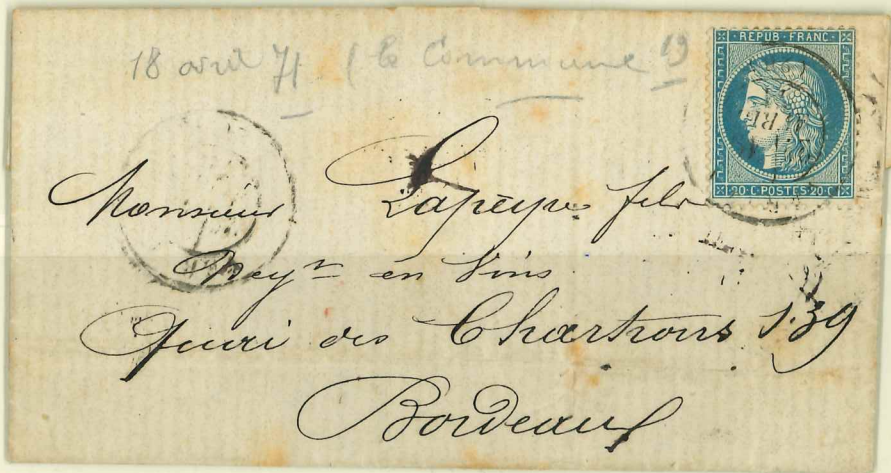 18 avril 71 (la Commune
REPUB·FRANC·
20·C·POSTES·20·C
Monsieur Lapeyre fils
Negt en Vins
Quai des Chartrons 139
Bordeaux